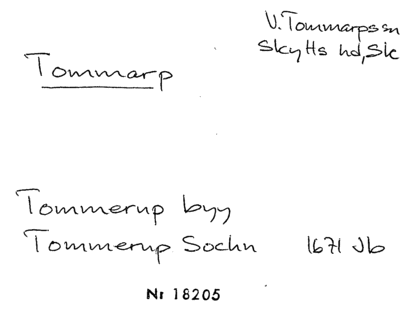 V. Tommarps sn
Skytts hd, Sk
Tommarp
Tommerup byy
Tommerup Sochn 1671 Jb
Nr 18205